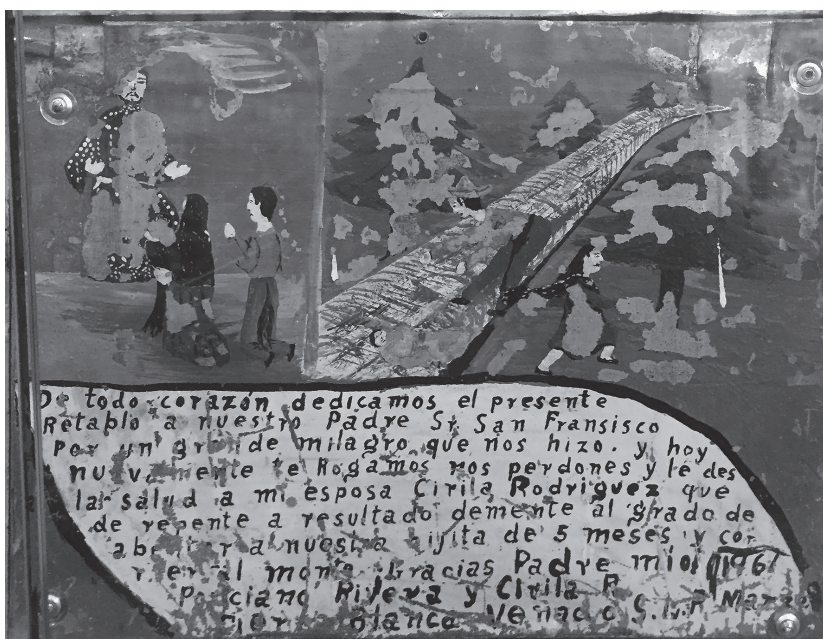 De todo corazón dedicamos el presente
Retablo a nuestro Padre Sr San Fransisco
Por un grande milagro que nos hizo. y hoy
nuevamente te Rogamos nos perdones y le des
la salud a mi esposa Cirila Rodriguez que
de repente a resultado demente al grado de
a nuestra hijita de 5 meses y cor
al monte Gracias Padre mio 1967
Rivera y Cirila R
Blanca S.L.P Marzo